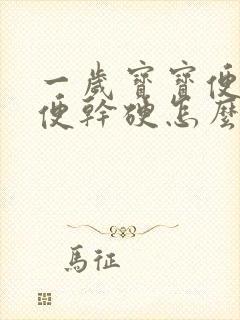 一歲寶寶便
便幹硬怎麼
馬征